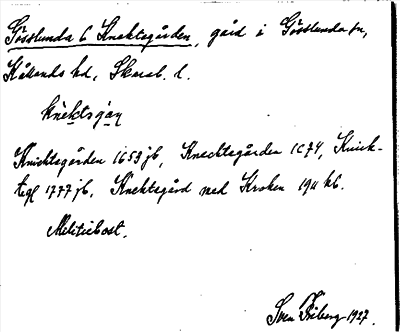 Gösslunda 6 Knektegården, gård i Gösslunda sn,
Kållands hd, Skarab. l.
knèktsgàn
Knichtsgården 1659 jb, Knechtegården 1674, Knick-
tegl 1777 jb, Knektegård med Kroken 1911 kb.
Militiebost.
Sven Friberg 1927.